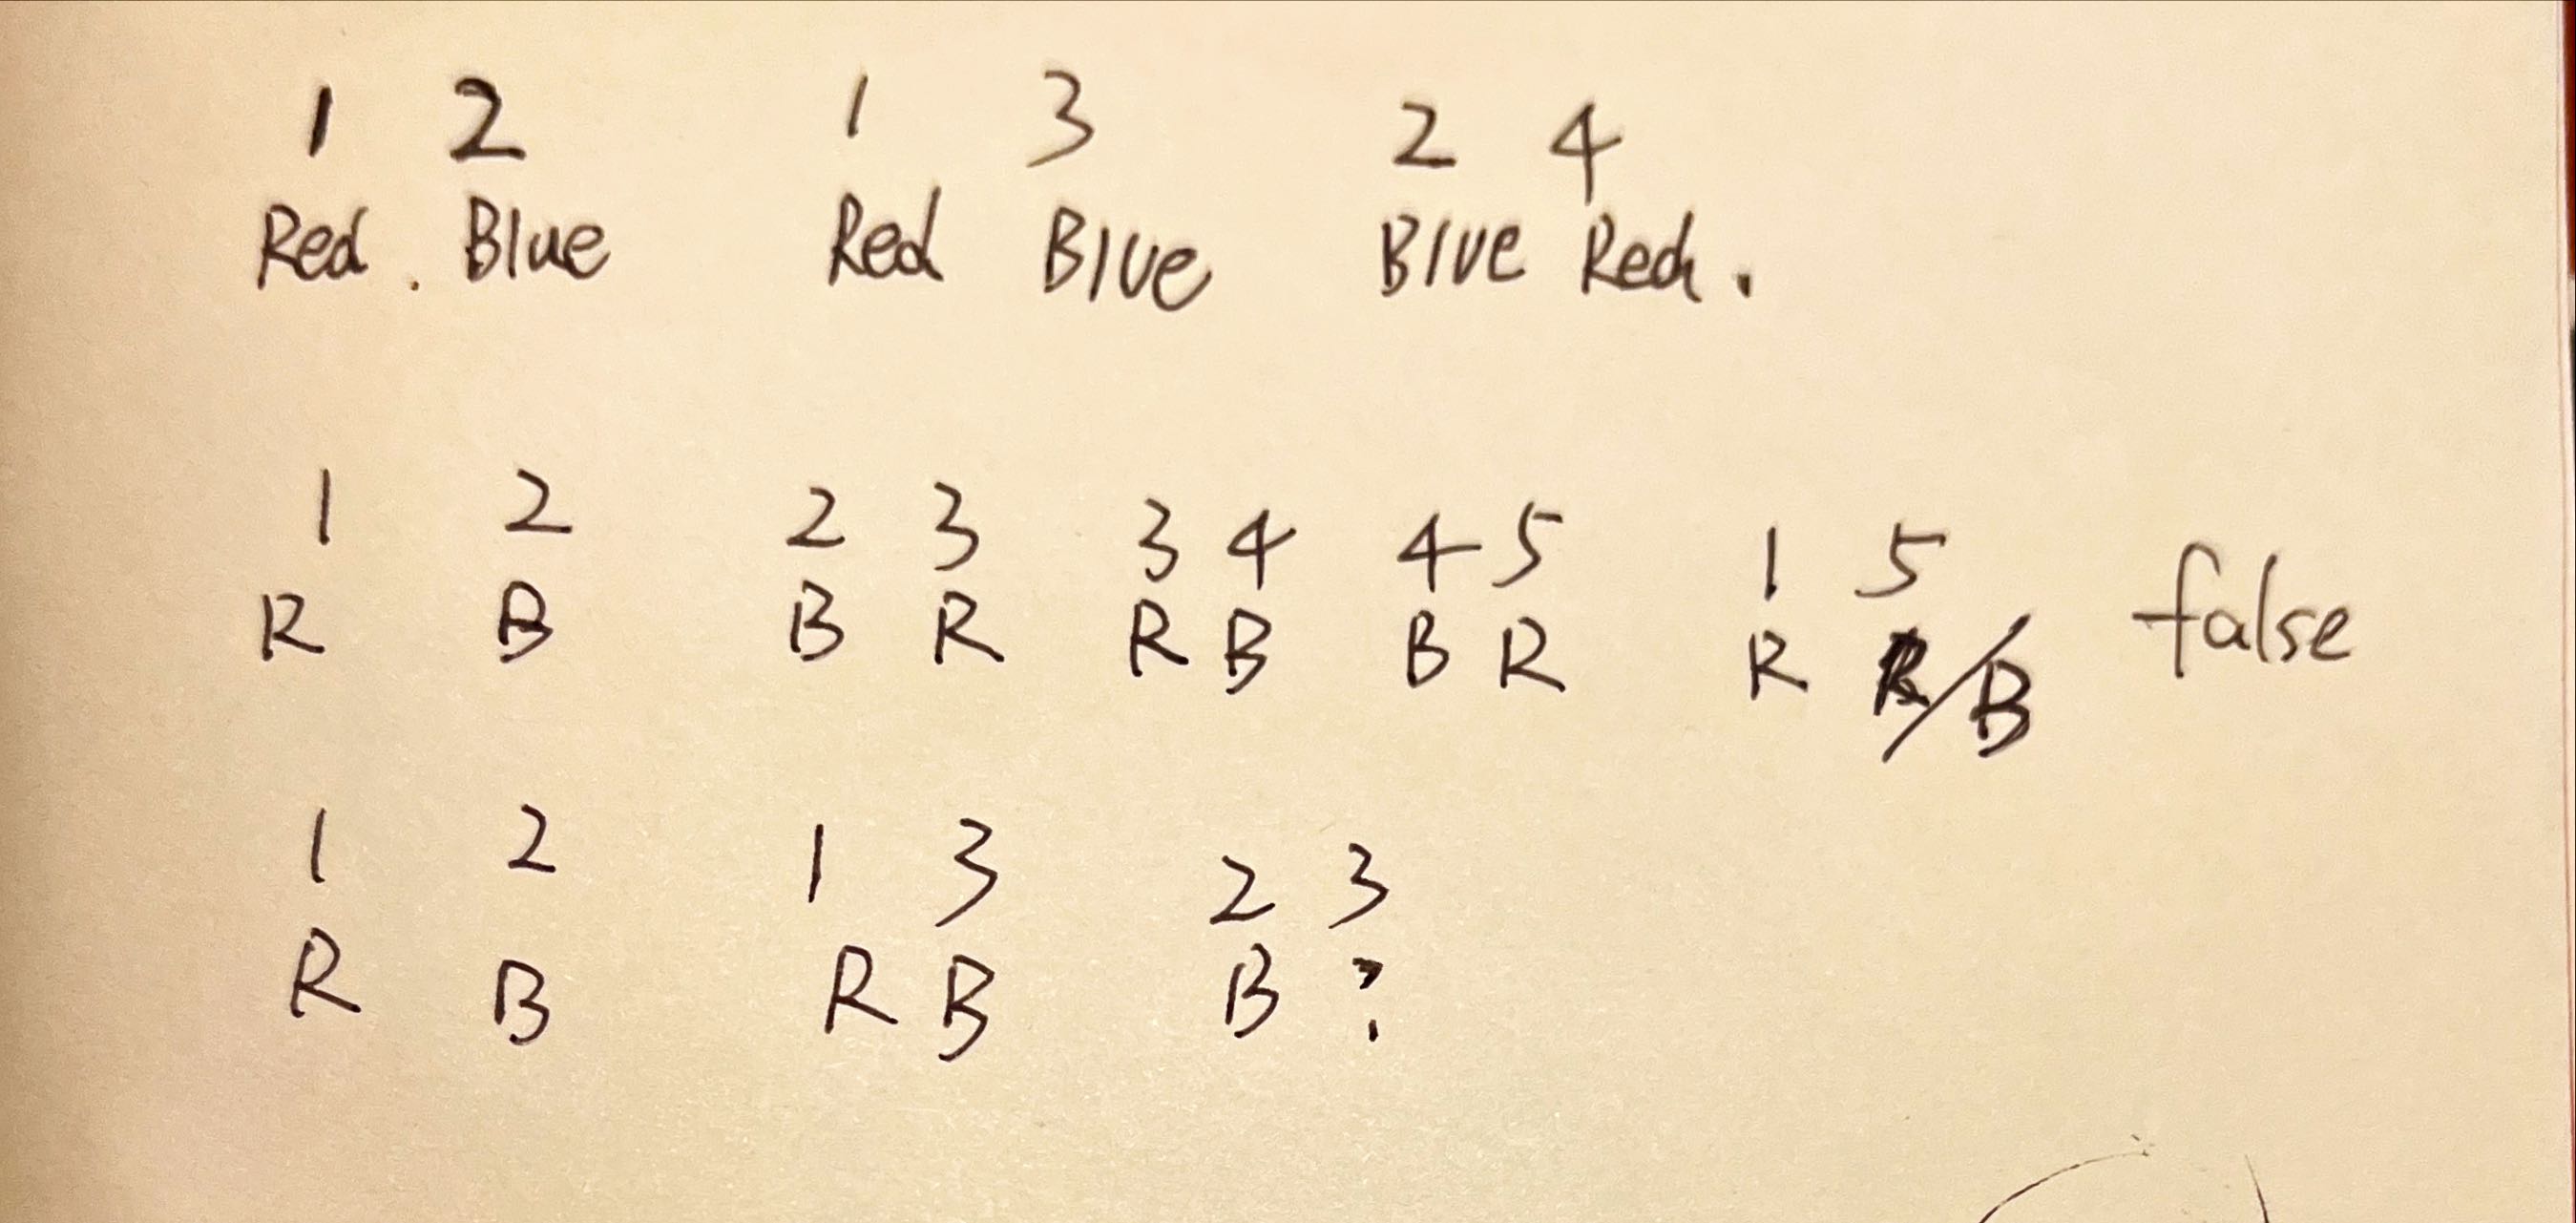 1 2 1 3 2 4
Red . Blue Red Blue Blue Red .
1 2 2 3 3 4 4 5 1 5
R B B R R B B R R R/B false
1 2 1 3 2 3
R B R B B ?